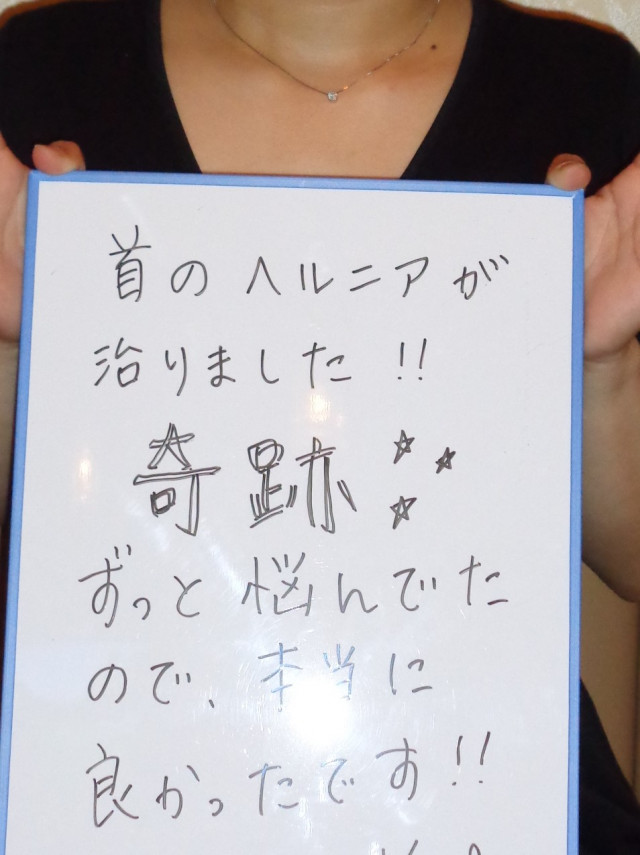 首のヘルニアが
治りました!!
奇跡☆☆☆
ずっと悩んでた
ので、本当に
良かったです!!